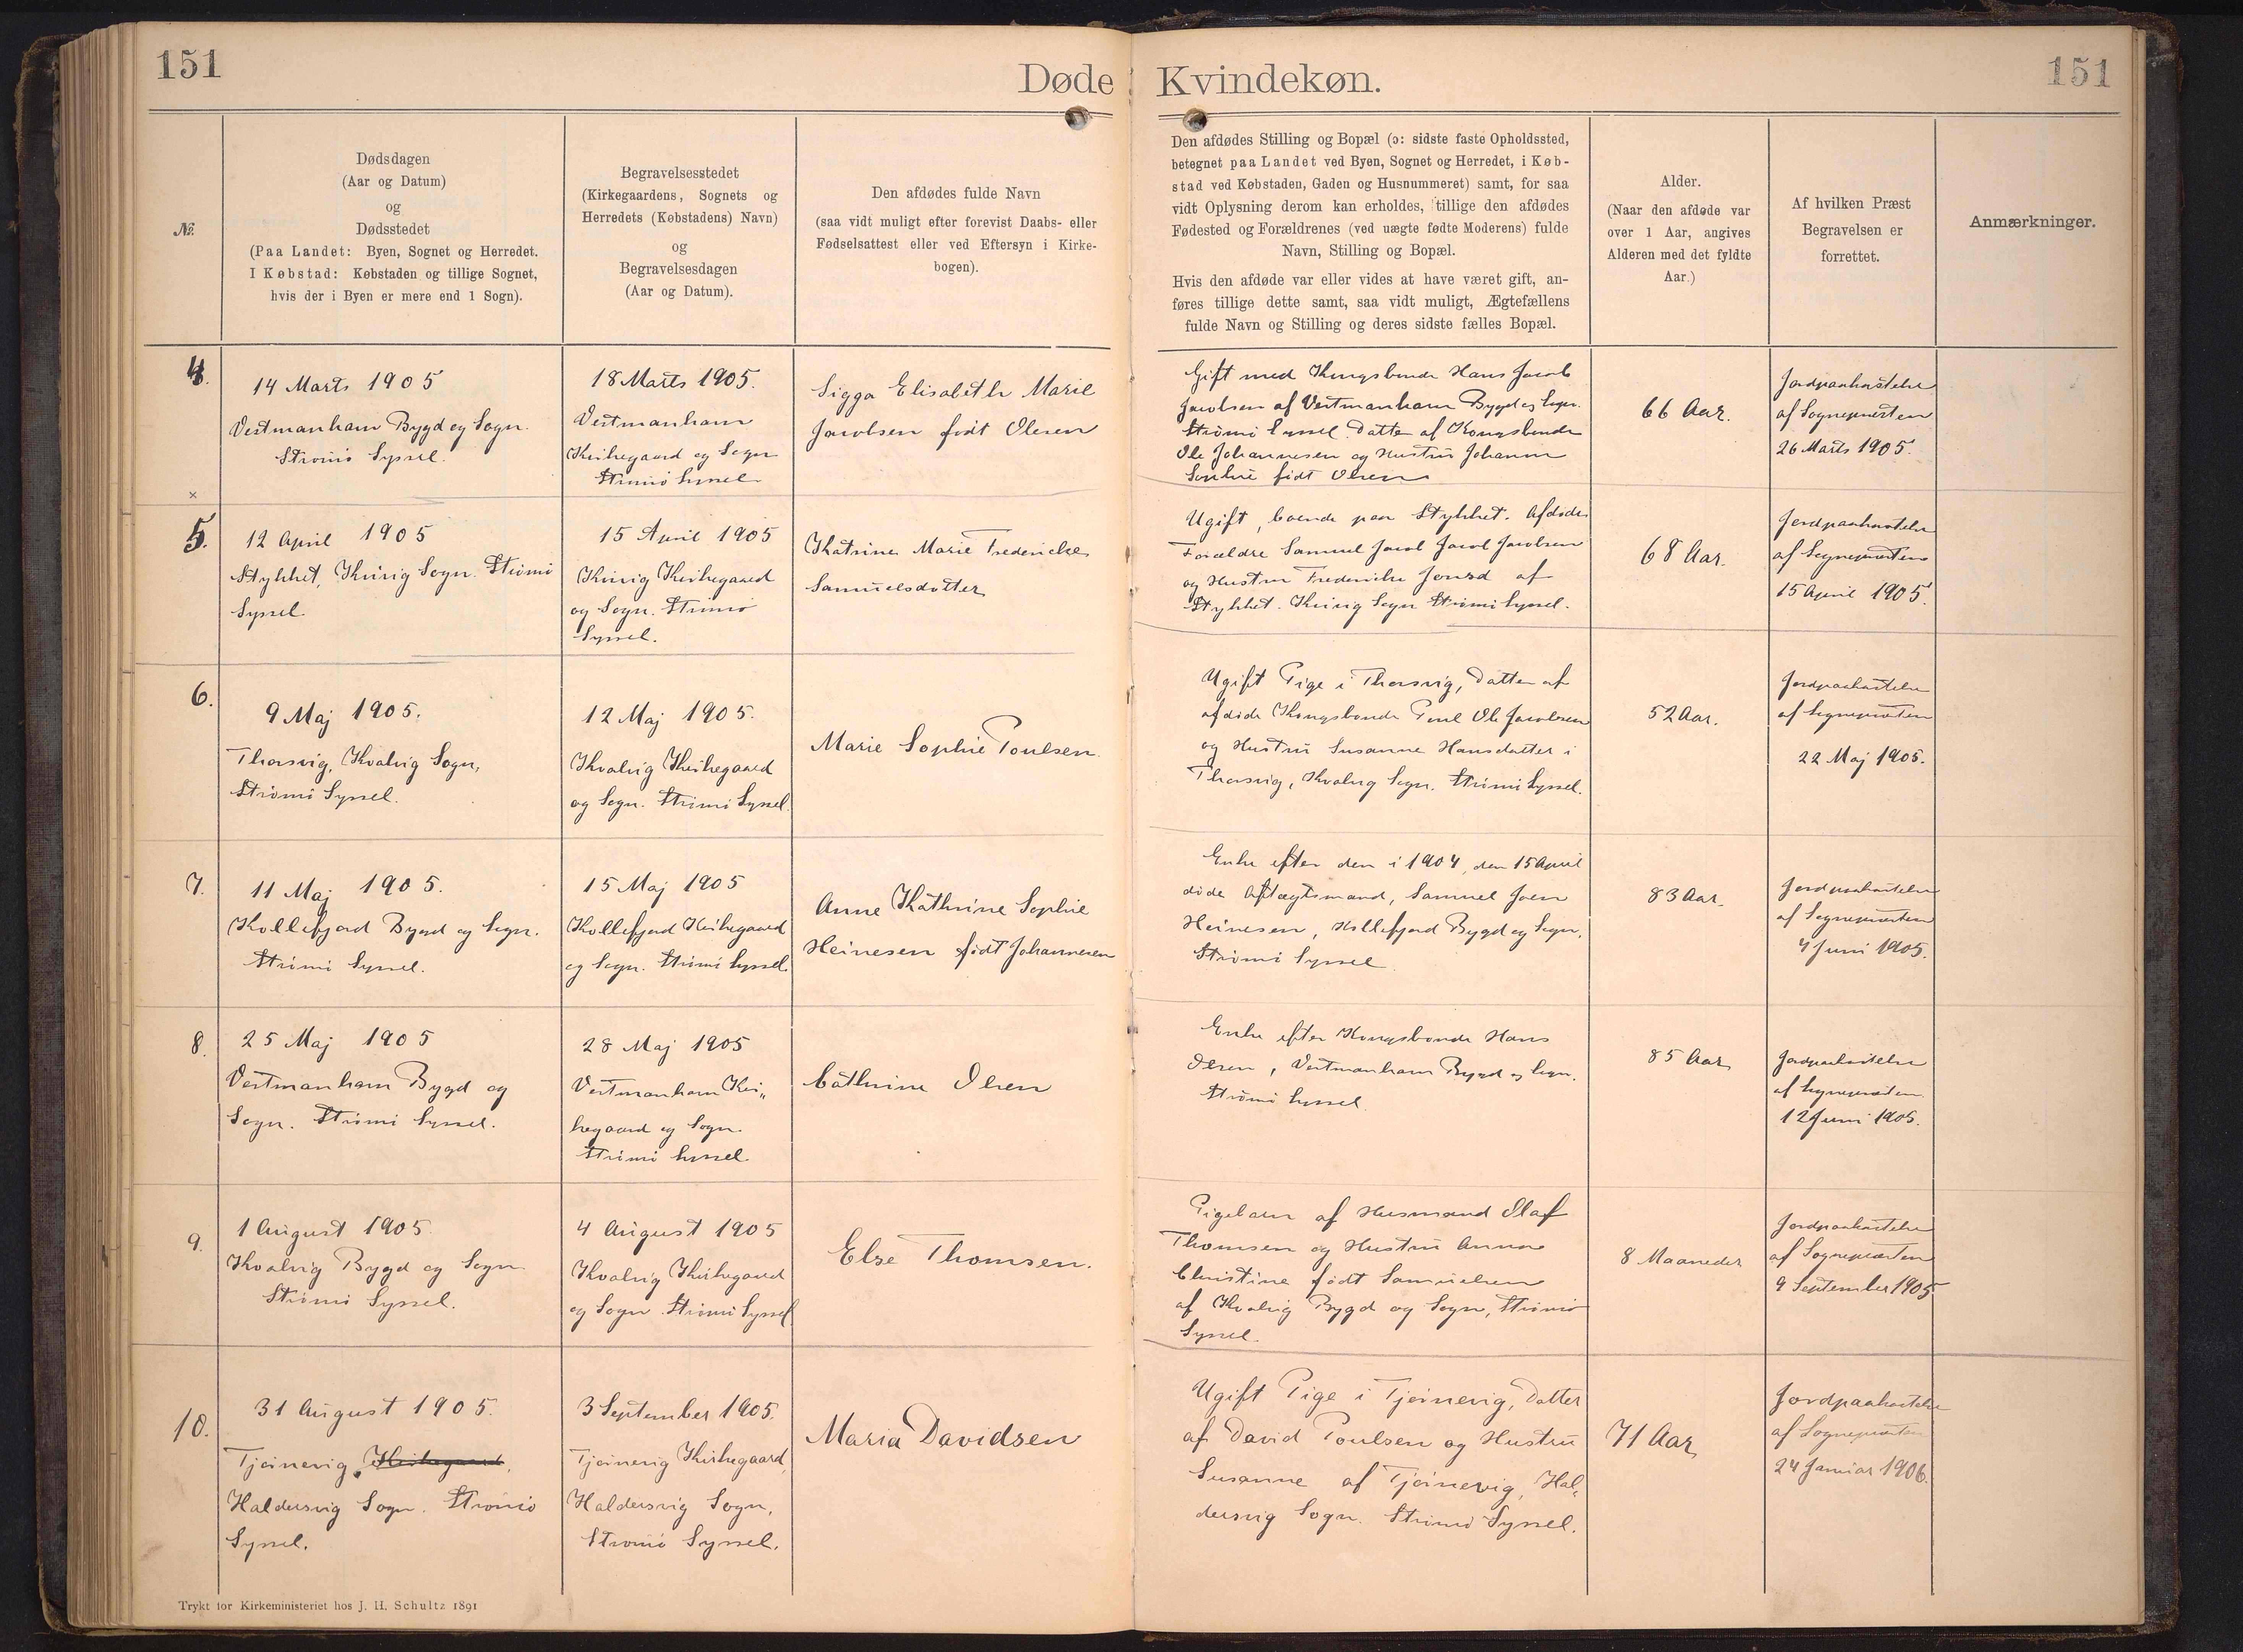 151
Døde
Kvindekøn.
151
№.
Dødsdagen
(Aar og Datum)
og
Dødsstedet
(Paa Landet: Byen, Sognet og Herredet.
I Købstad: Købstaden og tillige Sognet,
hvis der i Byen er mere end 1 Sogn).
Begravelsesstedet
(Kirkegaardens, Sognets og
Herredets (Købstadens) Navn)
og
Begravelsesdagen
(Aar og Datum).
Den afdødes fulde Navn
(saa vidt muligt efter forevist Daabs- eller
Fødselsattest eller ved Eftersyn i Kirke-
bogen).
Den afdødes Stilling og Bopæl (ɔ: sidste faste Opholdssted,
betegnet paa Landet ved Byen, Sognet og Herredet, i Køb-
stad ved Købstaden, Gaden og Husnummeret) samt, for saa
vidt Oplysning derom kan erholdes, tillige den afdødes
Fødested og Forældrenes (ved uægte fødte Moderens) fulde
Navn, Stilling og Bopæl.
Hvis den afdøde var eller vides at have været gift, an-
føres tillige dette samt, saa vidt muligt, Ægtefællens
fulde Navn og Stilling og deres sidste fælles Bopæl.
Alder.
(Naar den afdøde var
over 1 Aar, angives
Alderen med det fyldte
Aar.)
Af hvilken Præst
Begravelsen er
forrettet.
Anmærkninger.
4.
14 Marts 1905
Vestmanhavn Bygd og Sogn.
Strömö Syssel.
18 Marts 1905.
Vestmanhavn
Kirkegaard og Sogn
Strömö Syssel
Sigga Elisabeth Marie
Jacobsen födt Olesen
Gift med Kongsbonde Hans Jacob
Jacobsen af Vestmanhavn Bygd og Sogn.
Strömö Syssel. Datter af Kongsbonde
Ole Johannesen og Hustru Johanne
Sophie födt Olsen
66 Aar.
Jordpaakastelse
af Sognepræsten
26 Marts 1905.
×
5.
12 April 1905
Stykket, Kvivig Sogn. Strömö
Syssel
15 April 1905
Kvivig Kirkegaard
og Sogn. Strömö
Syssel.
Katrine Marie Fredericke
Samuelsdatter
Ugift, boende paa Stykket. Afdödes
Forældre Samuel Jacob Jacob Jacobsen
og Hustru Fredericke Jonsd af
Stykket. Kvivig Sogn Strömö Syssel.
68 Aar.
Jordpaakastelse
af Sognepræsten
15 April 1905.
6.
9 Maj 1905.
Thorsvig, Kvalvig Sogn,
Strömö Syssel.
12 Maj 1905.
Kvalvig Kirkegaard
og Sogn. Strömö Syssel.
Marie Sophie Poulsen.
Ugift Pige i Thorsvig, Datter af
afdöde Kongsbonde Poul Ole Jacobsen
og Hustru Susanne Hansdatter i
Thorsvig, Kvalvig Sogn. Strömö Syssel.
52 Aar.
Jordpaakastelse
af Sognepræsten
22 Maj 1905.
7.
11 Maj 1905.
Kollefjord Bygd og Sogn.
Strömö Syssel.
15 Maj 1905
Kollefjord Kirkegaard
og Sogn. Strömö Syssel.
Anne Kathrine Sophie
Heinesen födt Johannesen
Enke efter den i 1904, den 15 April
döde Aftægtsmand, Samuel Joen
Heinesen, Kollefjord Bygd og Sogn.
Strömö Syssel
83 Aar.
Jordpaakastelse
af Sognepræsten
4 Juni 1905.
8.
25 Maj 1905
Vestmanhavn Bygd og
Sogn. Strömö Syssel.
28 Maj 1905
Vestmanhavn Kir„
kegaard og Sogn.
Strömö Syssel
Cathrine Olsen
Enke efter Kongsbonde Hans
Olsen, Vestmanhavn Bygd og Sogn.
Strömö Syssel.
85 Aar
Jordpaakastelse
af Sognepræsten
12 Juni 1905.
9.
1 August 1905
Kvalvig Bygd og Sogn
Strömö Syssel.
4 August 1905
Kvalvig Kirkegaard
og Sogn. Strömö Syssel
Else Thomsen.
Pigebarn af Husmand Olaf
Thomsen og Hustru Anna
Christine födt Samuelsen
af Kvalvig Bygd og Sogn, Strömö
Syssel.
8 Maaneder
Jordpaakastelse
af Sognepræsten
9 September 1905
10.
31 August 1905.
Tjörnevig, Kirkegaard,
Haldersvig Sogn. Strömö
Syssel.
3 September 1905.
Tjörnevig Kirkegaard,
Haldersvig Sogn,
Strömö Syssel.
Maria Davidsen
Ugift Pige i Tjörnevig, Datter
af David Poulsen og Hustru
Susanne af Tjörnevig, Hal„
dersvig Sogn. Strömö Syssel.
71 Aar
Jordpaakastelse
af Sognepræsten
24 Januar 1906.
Trykt for Kirkeministeriet hos J. H. Schultz 1891